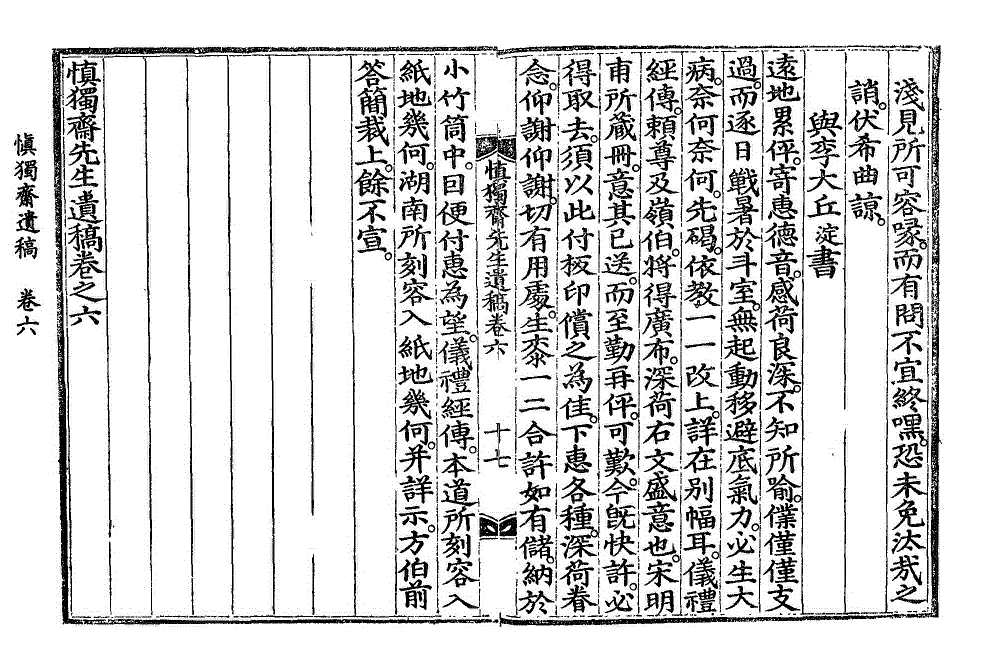 淺見所可容喙。而有問不宜終嘿。恐未免汰哉之
誚。伏希曲諒。
與李大丘淀書
遠地累伻。寄惠德音。感荷良深。不知所喩。僕僅僅支
過。而逐日戰暑於斗室。無起動移避底氣力。必生大
病。奈何奈何。先碣。依教一一改上。詳在別幅耳。儀禮
經傳。賴尊及嶺伯。將得廣布。深荷右文盛意也。宋明
甫所藏冊。意其已送。而至勤再伻。可歎。今旣快許。必
得取去。須以此付板印償之爲佳。下惠各種。深荷眷
念。仰謝仰謝。切有用處。生㯃一二合許如有儲。納於
愼獨齋先生遺稿卷六
十七
小竹筒中。回便付惠爲望。儀禮經傳。本道所刻容入
紙地幾何。湖南所刻容入 紙地幾何。幷詳示。方伯前
答簡裁上。餘不宣。
愼獨齋先生遺稿卷之六
愼獨齋遺稿 卷六